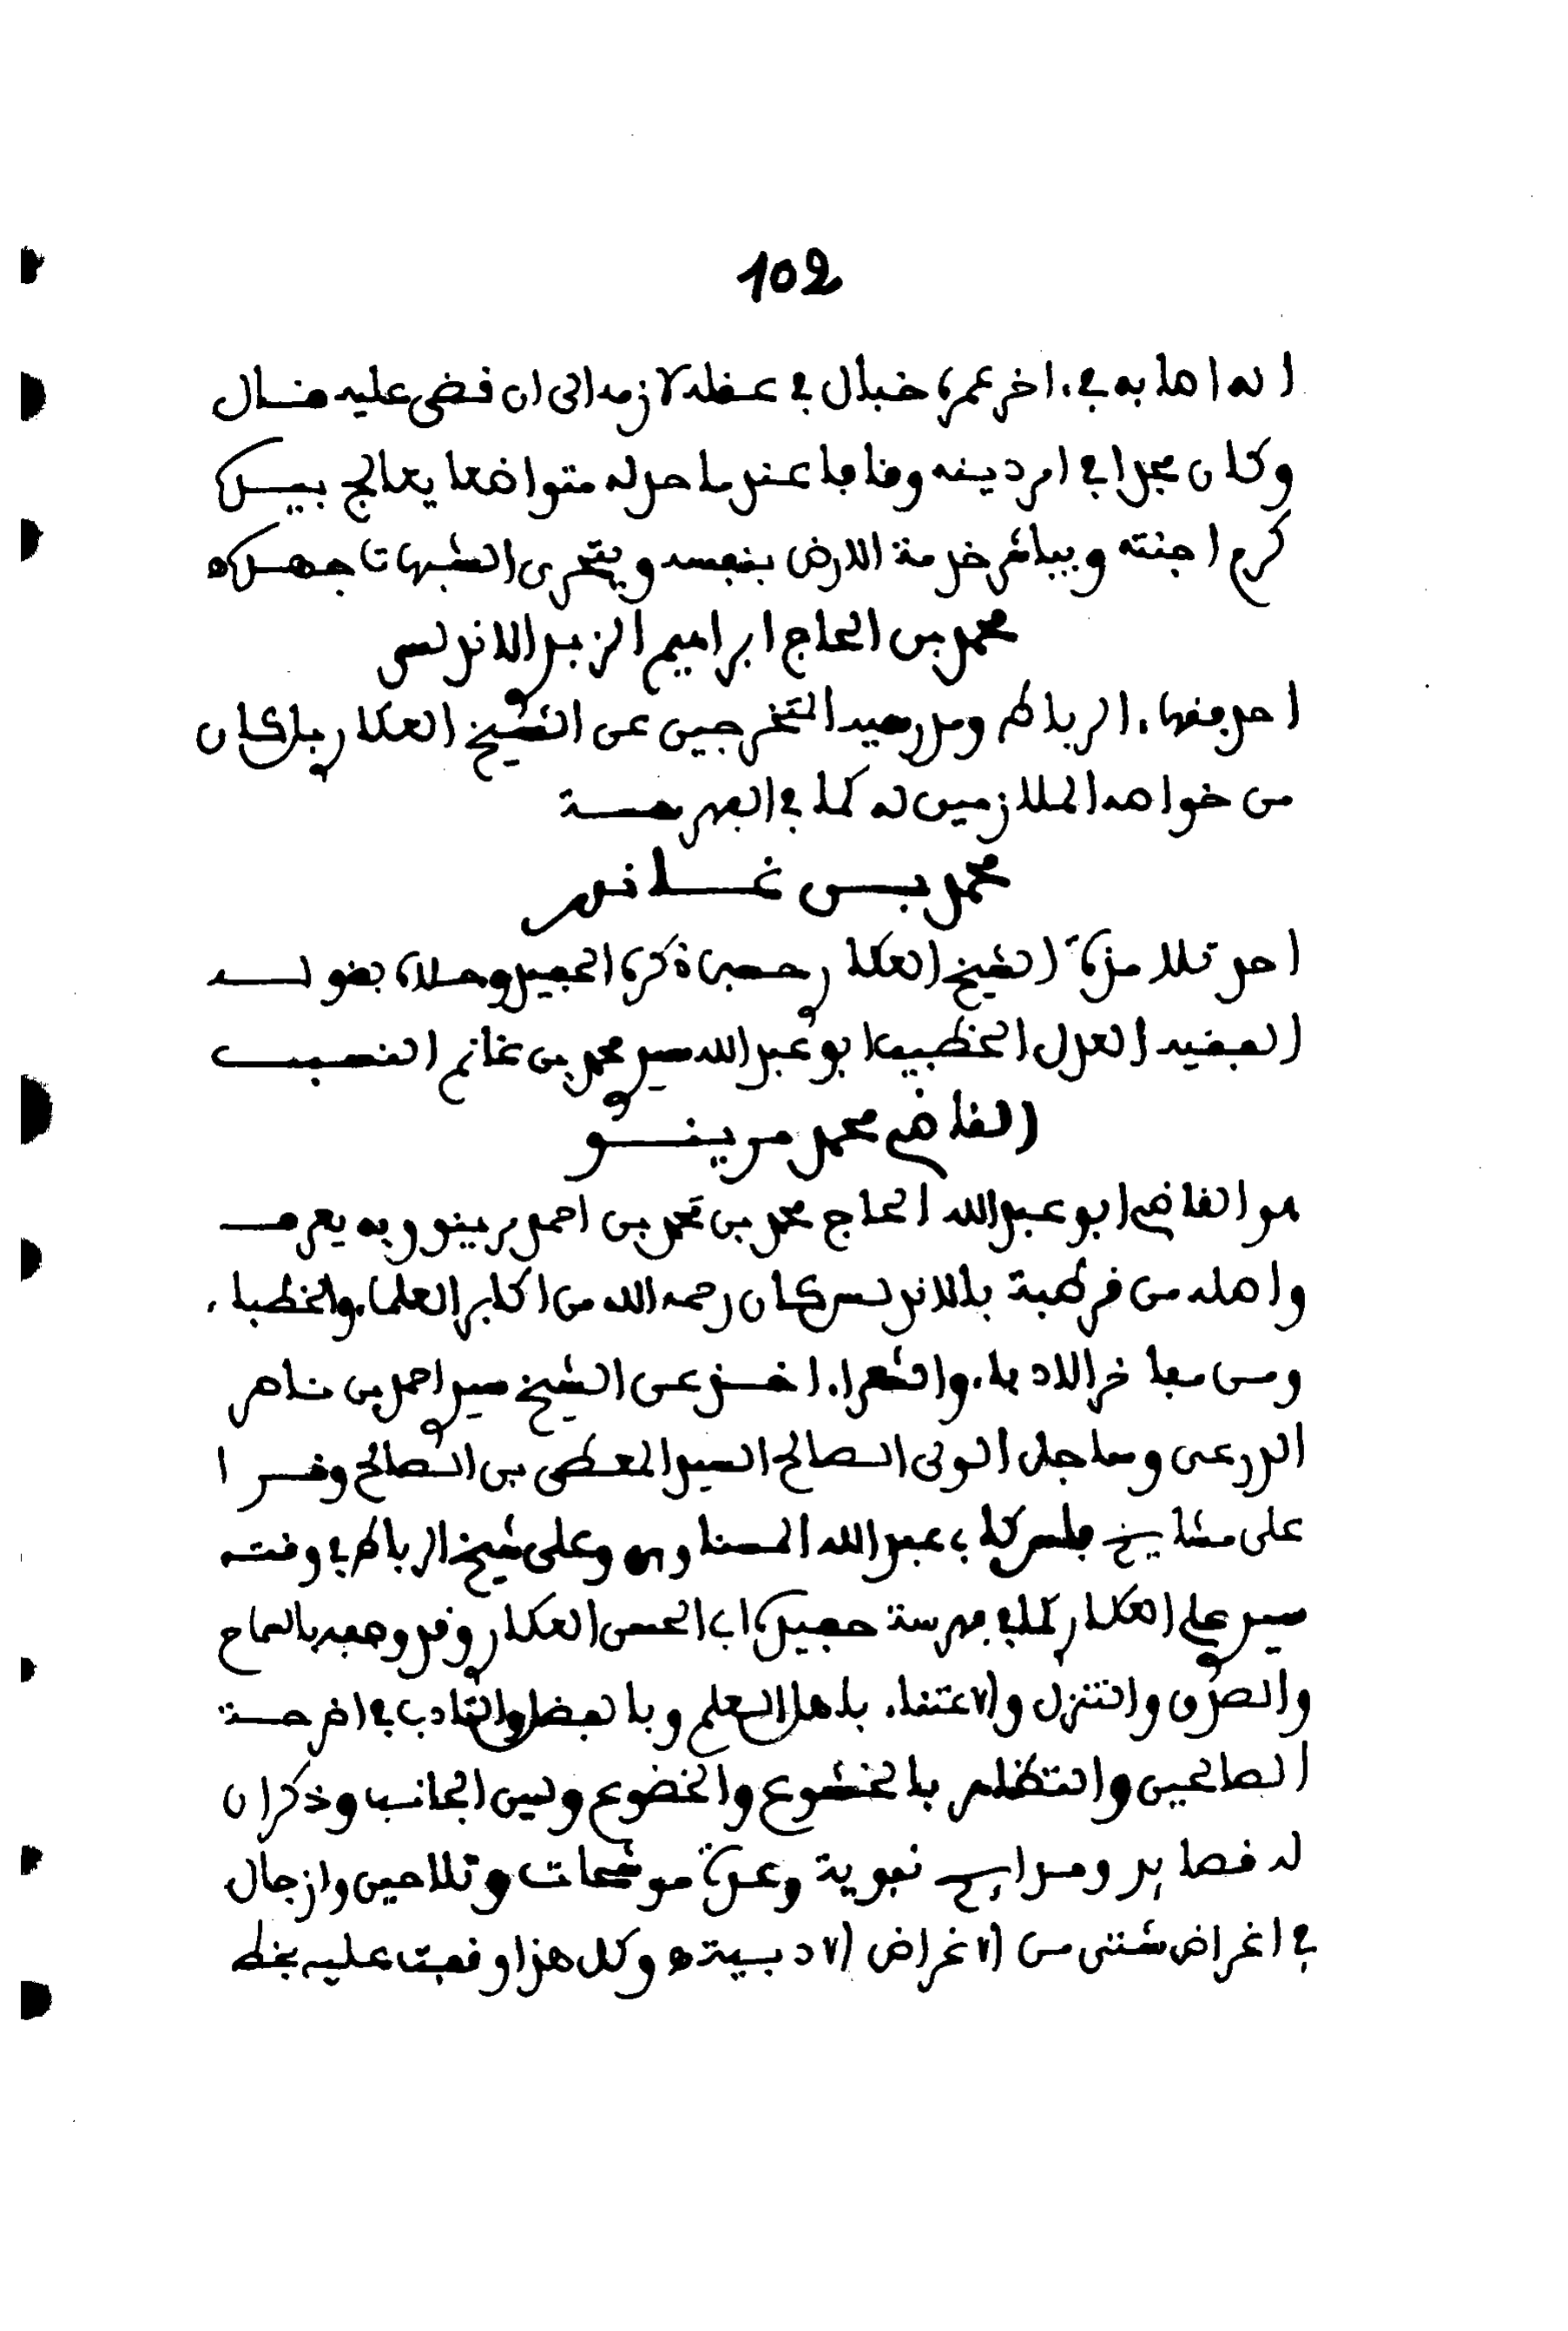 102
انه اصابه في ءاخر عمره خبال في عقله لازمه الى ان قضى عليه قال
وكان مجدا في امر دينه وقافا عند ما حد له متواضعا يعالج بيده
كرم اجنته ويباشر خدمة الارض بنفسه ويتحرى الشبهات جهده
محمد بن الحاج ابراهيم الزبدي الاندلسي
احد فقهاء الرباط ومدرسيه المتخرجين عن الشيخ العكاري بل كان
من خواصه الملازمين له كما في الفهرسة
محمد بن غانم
احد تلامذة الشيخ العكاري حسبما ذكره الحفيد وحلاه بقوله
الفقيه العدل الخطيب ابو عبد الله سيدي محمد بن غانم النسب
القاضي محمد مرينو
هو القاضي ابو عبد الله الحاج محمد بن محمد بن احمد مرينو وبه يعرف
واصله من قرطبة بالاندلس كان رحمه الله من اكابر العلماء والخطباء
ومن مفاخر الادباء والشعراء اخذ عن الشيخ سيدي احمد بن ناصر
الدرعي وساجل الولي الصالح السيد المعطى بن الصالح وقرا
على مشايخ فاس كابي عبد الله المسناوي وعلى شيخ الرباط في وقته
سيدي علي العكاري كما في فهرسة حفيده ابي الحسن العكاري وقد وصفه بالسماح
والصدق والتنزل والاعتناء باهل العلم وبالفضل والتادب في اخر حسة
الصالحين والتظلم بالخشوع والخضوع ولين الجانب وذكر ان
له قصايد ومدايح نبوية وعدة موشحات وتلاحين وازجال
في اغراض شتى من الاغراض الادبية وكل هذا وقفت عليه بخط